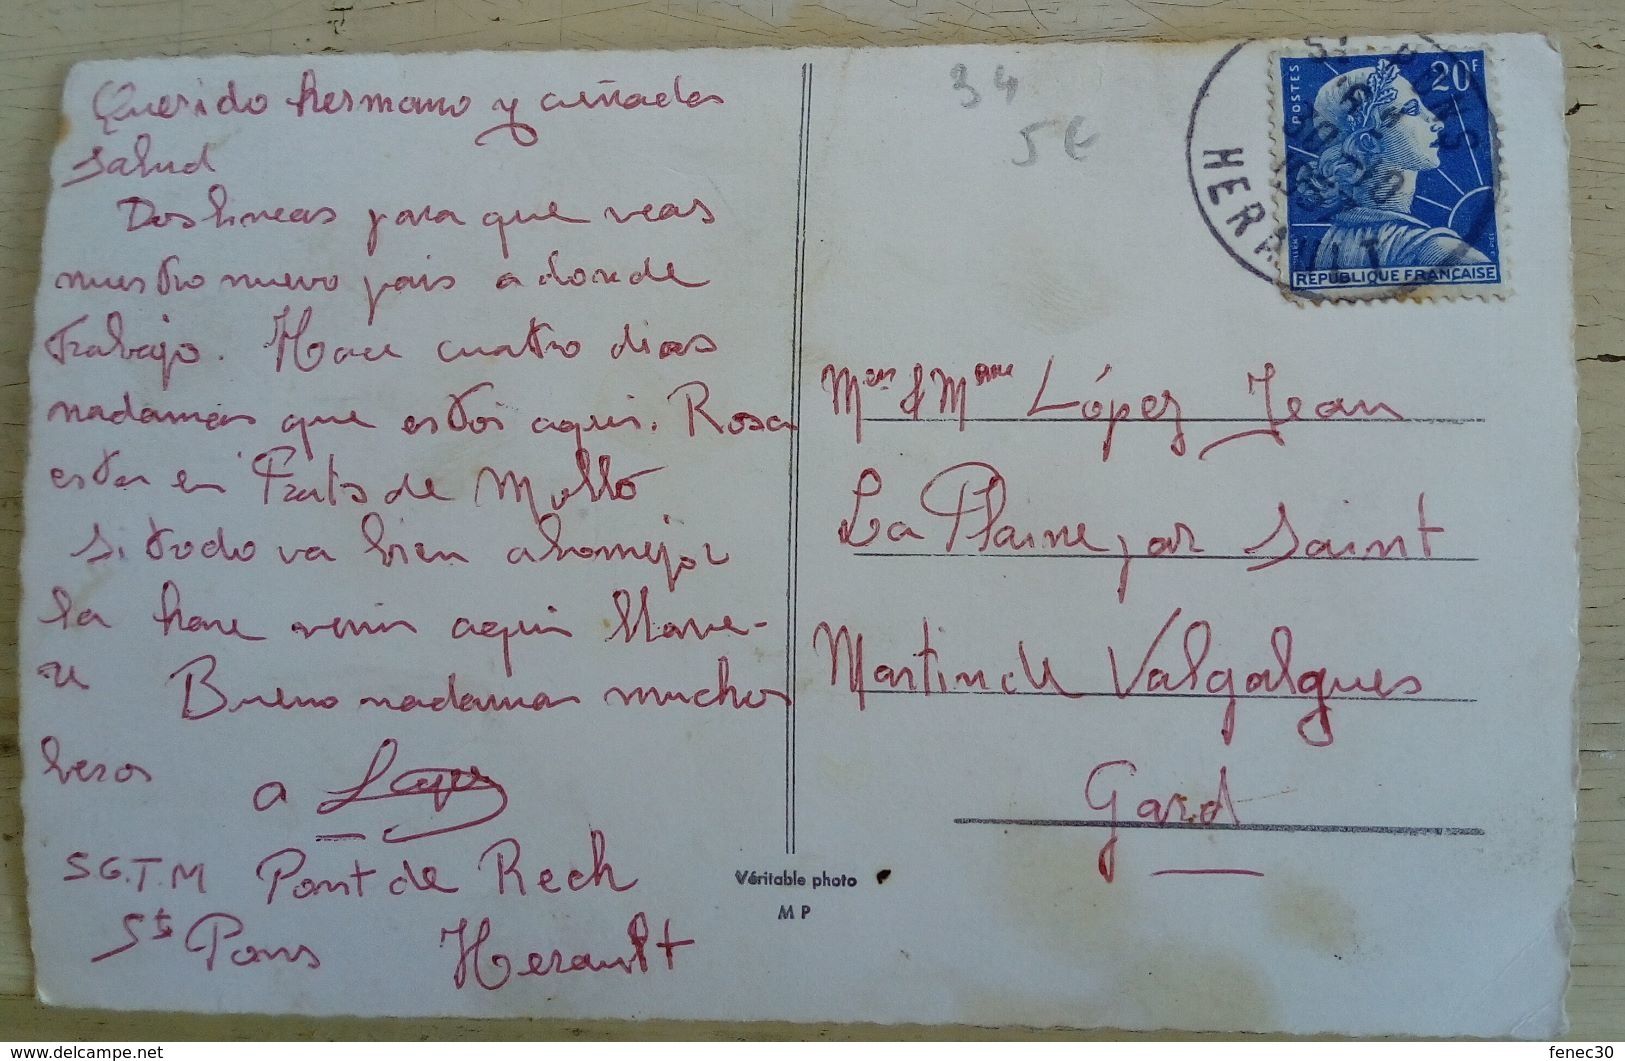 Querido hermano y cuñada
Salud
Dos lineas para que veas
nuestro nuevo pais a donde
trabajo. Hace cuatro dias
nadamas que estoi aqui. Rosa
esta en Prats de Mollo
Si todo va bien a lo mejor
la hare venir aqui
Bueno nadamas muchos
besos
a Lopez
S.G.T.M Pont de Rech
St Pons Herault
34
5€
HERAULT
POSTES
20F
REPUBLIQUE FRANÇAISE
Mr & Mme López Jean
La Plaine par Saint
Martin de Valgalgues
Gard
Véritable photo
MP
https://www.delcampe.net
fenec30